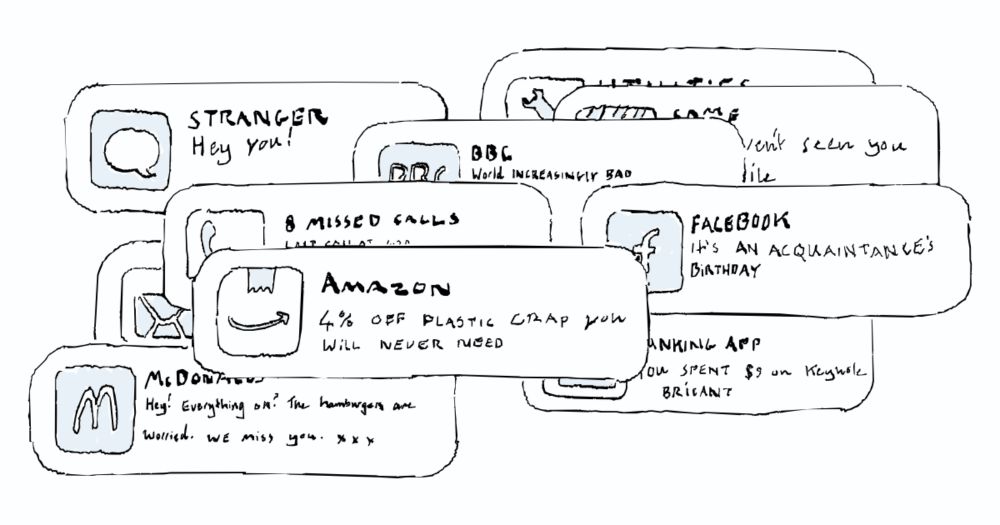 UTILITIES
GAME
ven't seen you
STRANGER
Hey you!
BBC
BBC
World INCREASINGLY BAD
8 MISSED CALLS
LAST CALL AT
f
FACEBOOK
It's AN ACQUAINTANCE'S
BIRTHDAY
AMAZON
4% OFF PLASTIC CRAP YOU
WILL NEVER NEED
ANKING APP
YOU SPENT $9 on Keyhole
M
McDONALDS
Hey! Everything ok? The hamburgers are
Worried. WE miss you. x x x